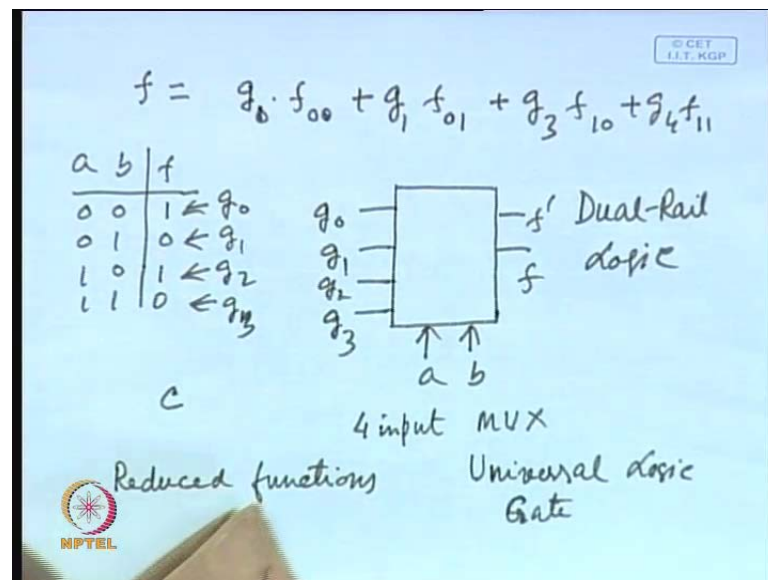 © CET
I.I.T. KGP
f = g0. f00 + g1 f01 + g3 f10 + g4 f11
a b f
0 0 1 ← g0
0 1 0 ← g1
1 0 1 ← g2
1 1 0 ← g3
g0
g1
g2
g3
f' Dual-Rail
f Logic
a b
4 input MUX
C
Reduced functions
Universal Logic
Gate
NPTEL